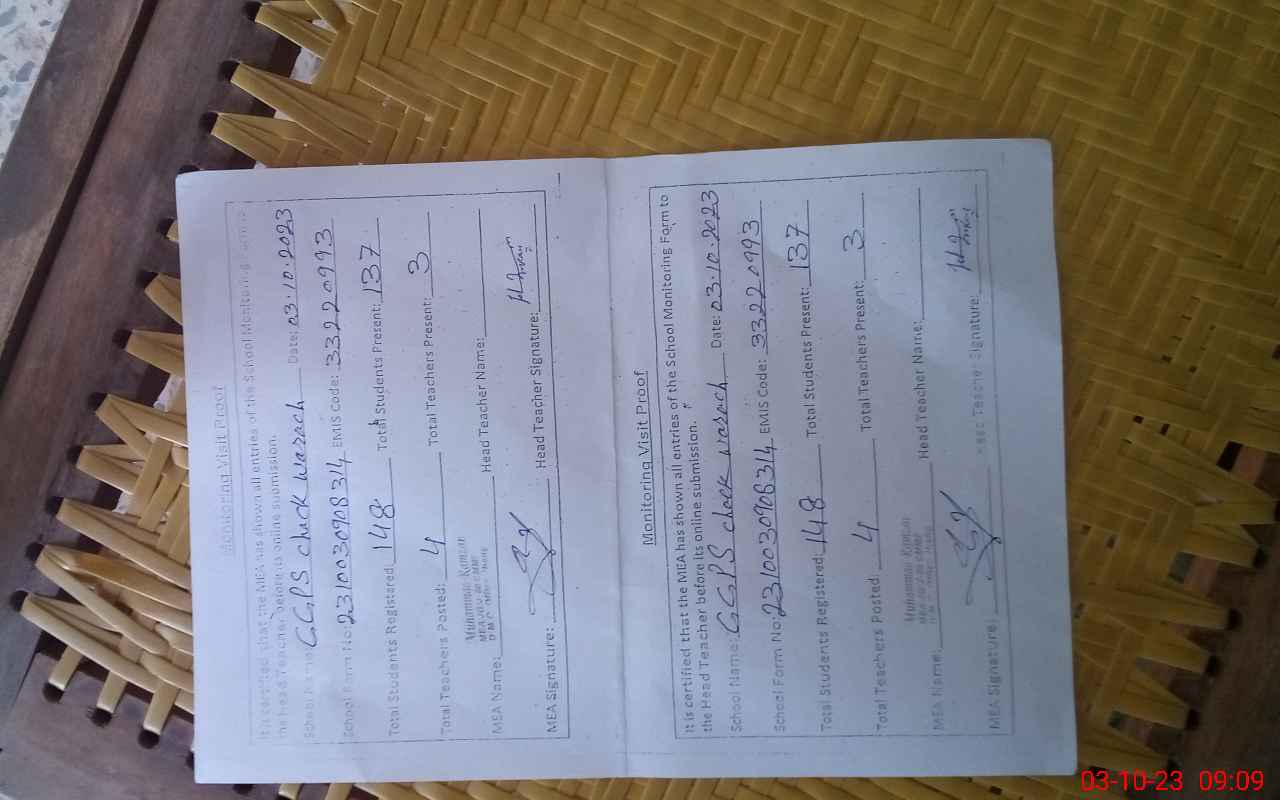 Monitoring Visit Proof
It is certified that the MEA has shown all entries of the School Monitoring Form to
the Head Teacher before its online submission.
School Name: GGPS chack warach Date: 03.10.2023
School Form No: 2310030908314 EMIS Code: 33220993
Total Students Registered: 148 Total Students Present: 137
Total Teachers Posted: 4 Total Teachers Present: 3
MEA Name: Head Teacher Name:
MEA Signature: Head Teacher Signature:
Monitoring Visit Proof
It is certified that the MEA has shown all entries of the School Monitoring Form to
the Head Teacher before its online submission.
School Name: GGPS chack warach Date: 03.10.2023
School Form No: 2310030908314 EMIS Code: 33220993
Total Students Registered: 148 Total Students Present: 137
Total Teachers Posted: 4 Total Teachers Present: 3
MEA Name: Head Teacher Name:
MEA Signature: Head Teacher Signature:
03-10-23 09:09